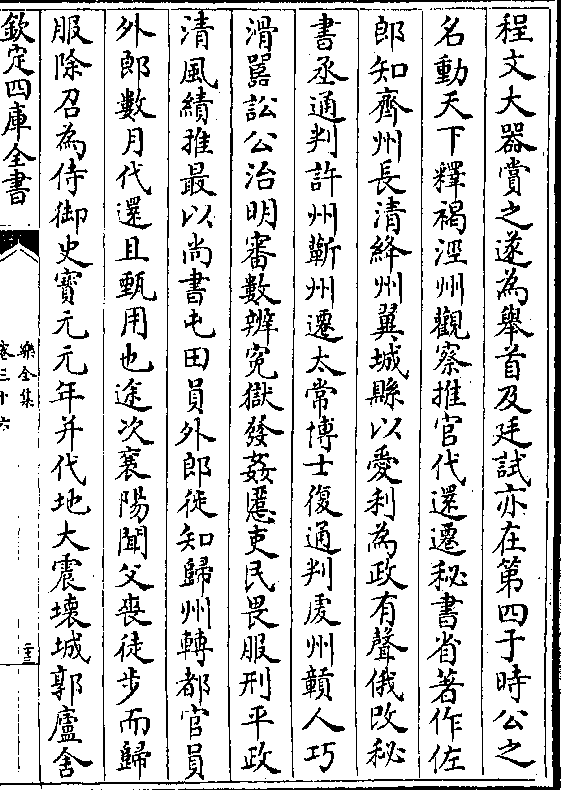 程文大器賞之遂為舉首及廷試亦在第四于時公之
名動天下釋褐涇州觀察推官代還遷秘書省著作佐
郎知齊州長清絳州翼城縣以愛利為政有聲俄改秘
書丞通判許州蘄州遷太常博士復通判䖍州贑人巧
滑嚚訟公治明審數辨寃獄發姦慝吏民畏服刑平政
清風績推最以尚書屯田員外郎徙知歸州轉都官員
外郎數月代還且甄用也途次襄陽聞父喪徒步而歸
服除召為侍御史寳元元年并代地大震壞城郭廬舍
欽定四庫全書
樂全集
卷三十六